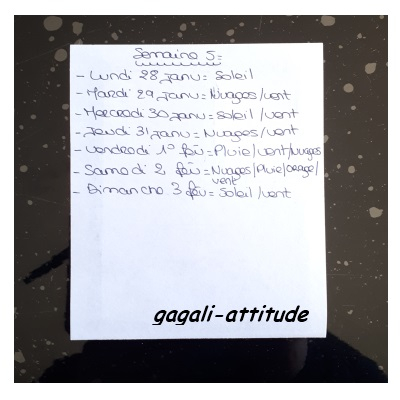 Semaine 5:
- Lundi 28 Janv = Soleil
- Mardi 29 Janv = Nuages/vent
- Mercredi 30 Janv = Soleil/vent
- Jeudi 31 Janv = Nuages/vent
- Vendredi 1° fév = Pluie/vent/Nuages
- Samedi 2 fév = Nuages/Pluie/orage/
vent
- Dimanche 3 fév = Soleil/vent
gagali-attitude